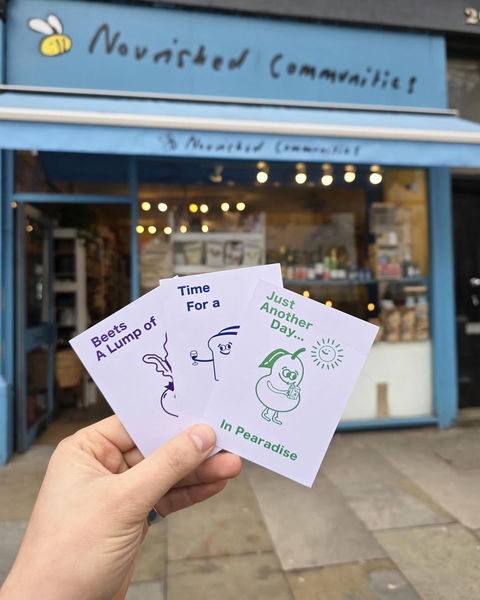 Nourished Communities
Nourished Communities
Beets
A Lump of
Time
For a
Just
Another
Day...
In Pearadise